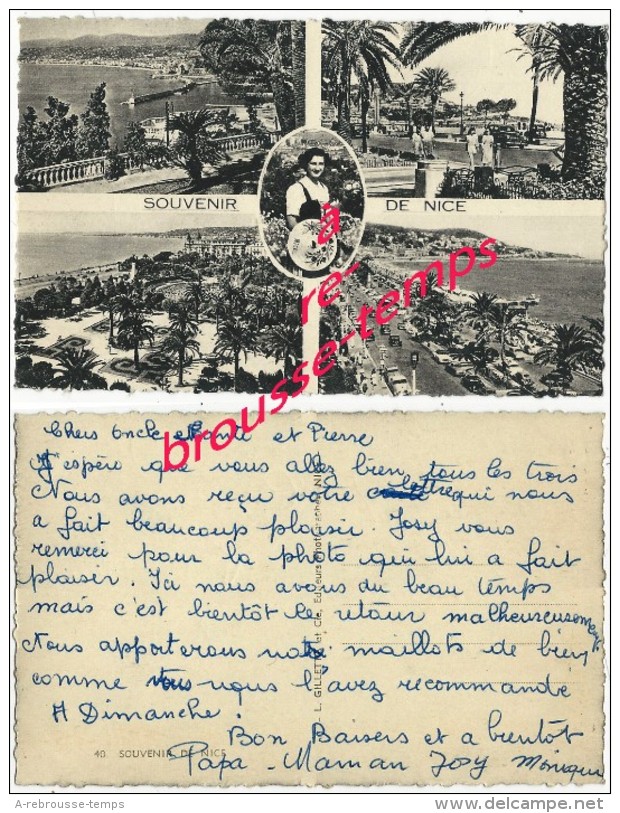 SOUVENIR DE NICE
à
re-
brousse-temps
Chers Oncle et Pierre
J'espère que vous allez bien tous les trois
Nous avons reçu votre lettre qui nous
a fait beaucoup plaisir. Josy vous
remerci pour la photo qui lui a fait
plaisir. Ici nous avons du beau temps
mais c'est bientôt le retour malheureusement
Nous apporterons nos maillots de bien
comme vous nous l'avez recommande
A Dimanche.
Bon Baisers et a bientôt
Papa - Maman Josy Monique
40. SOUVENIR DE NICE
L. GILLETTA et Cie, Editeurs Photographes, NI
A-rebrousse-temps
http://www.delcampe.net